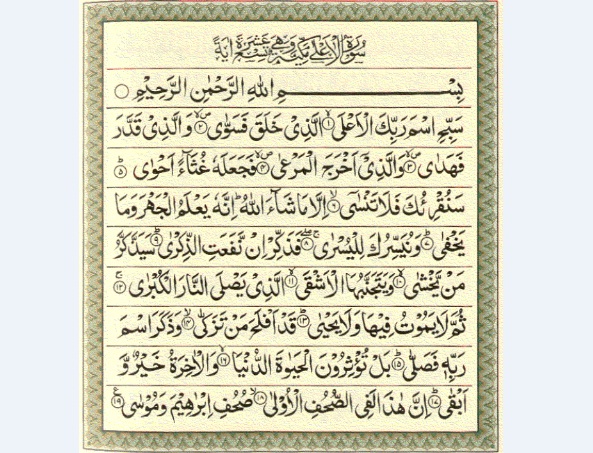 سُوْرَةُ الْاَعْلٰى مَكِّيَّةٌ وَّهِيَ تِسْعَ عَشَرَةَ اٰيَةً
بِسْــــــــمِ اللّٰهِ الرَّحْمٰنِ الرَّحِيْمِ ○
سَبِّحِ اسْمَ رَبِّكَ الْاَعْلَى ۙ﴿۱﴾ الَّذِىْ خَلَقَ فَسَوّٰى ۪ۙ﴿۲﴾ وَالَّذِىْ قَدَّرَ
فَهَدٰى ۪ۙ﴿۳﴾ وَالَّذِىْ اَخْرَجَ الْمَرْعٰى ۪ۙ﴿۴﴾ فَجَعَلَهٗ غُثَآءً اَحْوٰى ؕ﴿۵﴾
سَنُقْرِئُكَ فَلَا تَنْسٰٓى ۙ﴿۶﴾ اِلَّا مَا شَآءَ اللّٰهُ ؕ اِنَّهٗ يَعْلَمُ الْجَهْرَ وَمَا
يَخْفٰى ؕ﴿۷﴾ وَنُيَسِّرُكَ لِلْيُسْرٰى ۚۖ﴿۸﴾ فَذَكِّرْ اِنْ نَّفَعَتِ الذِّكْرٰى ؕ﴿۹﴾ سَيَذَّكَّرُ
مَنْ يَّخْشٰى ۙ﴿۱۰﴾ وَيَتَجَنَّبُهَا الْاَشْقَى ۙ﴿۱۱﴾ الَّذِىْ يَصْلَى النَّارَ الْكُبْرٰى ۚ﴿۱۲﴾
ثُمَّ لَا يَمُوْتُ فِيْهَا وَلَا يَحْيٰى ؕ﴿۱۳﴾ قَدْ اَفْلَحَ مَنْ تَزَكّٰى ۙ﴿۱۴﴾ وَذَكَرَ اسْمَ
رَبِّهٖ فَصَلّٰى ؕ﴿۱۵﴾ بَلْ تُؤْثِرُوْنَ الْحَيٰوةَ الدُّنْيَا ۖ﴿۱۶﴾ وَالْاٰخِرَةُ خَيْرٌ وَّ
اَبْقٰى ؕ﴿۱۷﴾ اِنَّ هٰذَا لَفِى الصُّحُفِ الْاُوْلٰى ۙ﴿۱۸﴾ صُحُفِ اِبْرٰهِيْمَ وَمُوْسٰى ﴿۱۹﴾